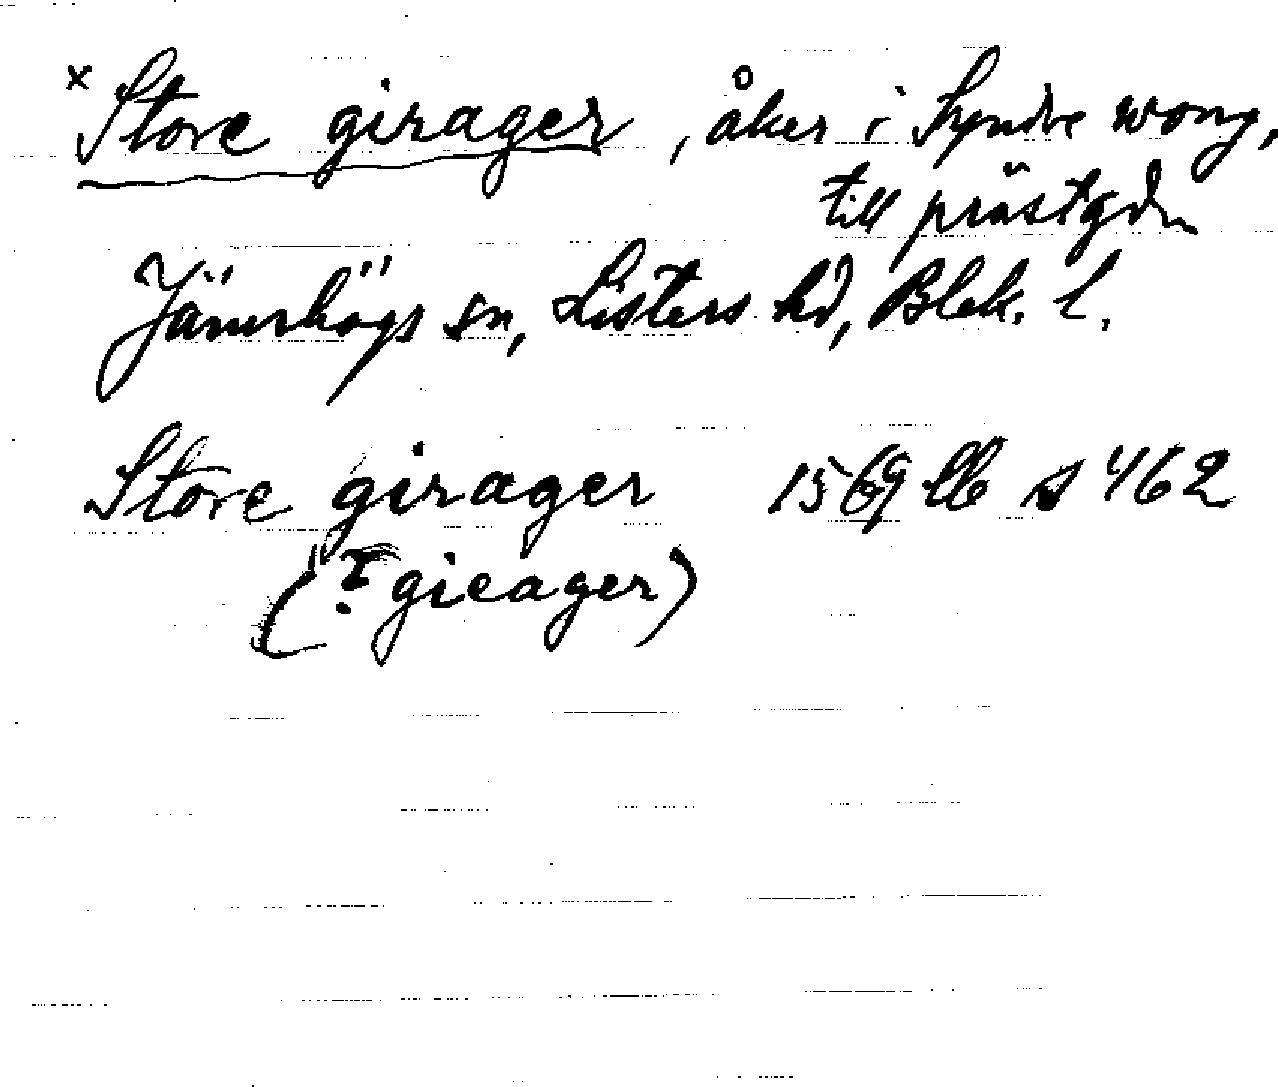 x Store girager, åker i Syndre wong,
till prästgdn
Jämshögs sn, Listers hd, Blek. l.
Store girager 1569 lb s 462
(? gieager)